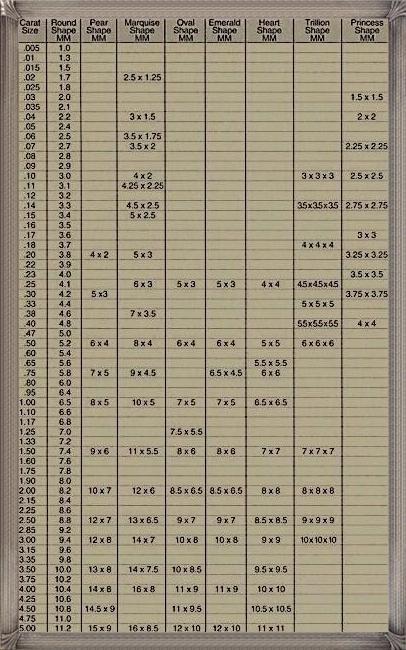 Carat Size Round Shape MM Pear Shape MM Marquise Shape MM Oval Shape MM Emerald Shape MM Heart Shape MM Trillion Shape MM Princess Shape MM
.005 1.0
.01 1.3
.015 1.5
.02 1.7 2.5 x 1.25
.025 1.8
.03 2.0 1.5 x 1.5
.035 2.1
.04 2.2 3 x 1.5 2 x 2
.05 2.4
.06 2.5 3.5 x 1.75
.07 2.7 3.5 x 2 2.25 x 2.25
.08 2.8
.09 2.9
.10 3.0 4 x 2 3 x 3 x 3 2.5 x 2.5
.11 3.1 4.25 x 2.25
.12 3.2
.14 3.3 4.5 x 2.5 3.5x3.5x3.5 2.75 x 2.75
.15 3.4 5 x 2.5
.16 3.5
.17 3.6 3 x 3
.18 3.7 4 x 4 x 4
.20 3.8 4 x 2 5 x 3 3.25 x 3.25
.22 3.9
.23 4.0 3.5 x 3.5
.25 4.1 6 x 3 5 x 3 5 x 3 4 x 4 4.5x4.5x4.5
.30 4.2 5 x3 3.75 x 3.75
.33 4.4 5 x 5 x 5
.38 4.6 7 x 3.5
.40 4.8 5.5x5.5x5.5 4 x 4
.47 5.0
.50 5.2 6 x 4 8 x 4 6 x 4 6 x 4 5 x 5 6 x 6 x 6
.60 5.4
.65 5.6 5.5 x 5.5
.75 5.8 7 x 5 9 x 4.5 6.5 x 4.5 6 x 6
.80 6.0
.95 6.4
1.00 6.5 8 x 5 10 x 5 7 x 5 7 x 5 6.5 x 6.5
1.10 6.6
1.17 6.8
1.25 7.0 7.5 x 5.5
1.33 7.2
1.50 7.4 9 x 6 11 x 5.5 8 x 6 8 x 6 7 x 7 7 x 7 x 7
1.60 7.6
1.75 7.8
1.90 8.0
2.00 8.2 10 x 7 12 x 6 8.5 x 6.5 8.5 x 6.5 8 x 8 8 x 8 x 8
2.15 8.4
2.25 8.6
2.50 8.8 12 x 7 13 x 6.5 9 x 7 9 x 7 8.5 x 8.5 9 x 9 x 9
2.85 9.2
3.00 9.4 12 x 8 14 x 7 10 x 8 10 x 8 9 x 9 10x10x10
3.15 9.6
3.35 9.8
3.50 10.0 13 x 8 14 x 7.5 10 x 8.5 9.5 x 9.5
3.75 10.2
4.00 10.4 14 x 8 16 x 8 11 x 9 11 x 9 10 x 10
4.25 10.6
4.50 10.8 14.5 x 9 11 x 9.5 10.5 x 10.5
4.75 11.0
5.00 11.2 15 x 9 16 x 8.5 12 x 10 12 x 10 11 x 11